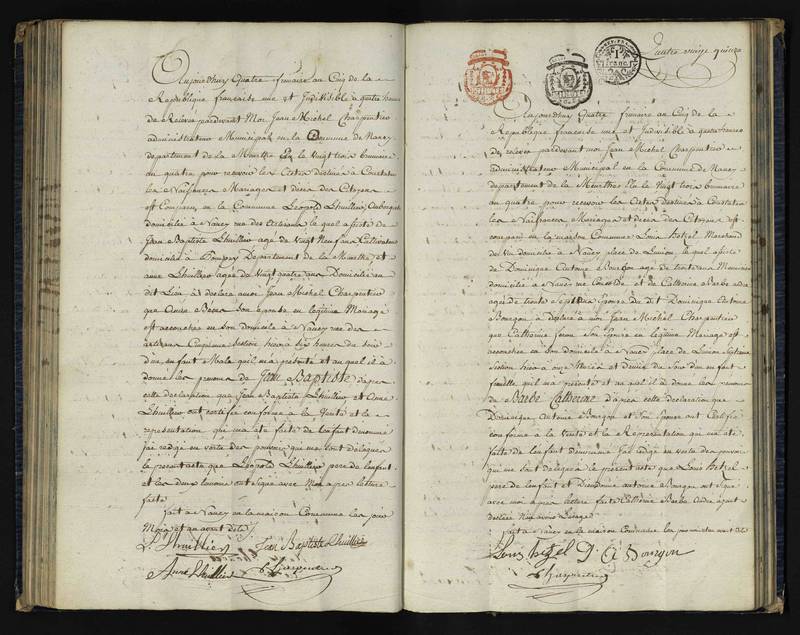 Aujourdhuy Quatre frimaire an Cinq de la
Republique francaise une et Indivisible a quatre heures
de Relevée pardevant Moi Jean Michel Charpentier
administrateur Municipal en la Commune de Nancy
departement de la Meurthe Elu le Vingt trois brumaire
an quatre pour recevoir les Actes destinés à Constater
les Naissances Mariages et décès des Citoyens
est Comparu en la Commune Léopold Lhuillier Aubergiste
domicilié à Nancy rue des artisans lequel assisté de
Jean Baptiste Lhuillier age de Vingt Neuf ans Cultivateur
domicilié à Pompey Departement de la Meurthe, et
anne Lhuillier agée de Vingt quatre ans Domiciliée au
dit Lieu à declaré à moi Jean Michel Charpentier
que Son épouse en legitime Mariage
est accouchée en Son domicile à Nancy rue des
artisans Cinquieme Section hier à Six heures du Soir
d'un enfant Male qu'il ma présenté et auquel il à
donné les prenoms de Jean Baptiste d'apres
cette declaration que Jean Baptiste Lhuillier et Anne
Lhuillier ont certifiée conforme à la Verité et la
representation qui ma été faite de Lenfant denommé
jai redigé en vertu des pouvoirs qui me sont délégués
le present acte que Léopold Lhuillier pere de lenfant
et les deux temoins ont Signé avec Moi apres lecture
faite
fait à Nancy en la maison Commune les jour
Mois et an avant dits
L. Lhuillier Jean Baptiste Lhuillier
Anne Lhuillier Charpentier
Quatre vingt quinze
1
franc
Aujourdhuy Quatre frimaire an Cinq de la
Republique francaise une et Indivisible a quatre heures
de relevée pardevant moi Jean Michel Charpentier
administrateur Municipal en la Commune de Nancy
departement de la Meurthe Elu le Vingt trois brumaire
an quatre pour recevoir les Actes destinés à Constater
les Naissances Mariages et décès des Citoyens est
comparu en la maison Commune Louis Hetzel Marchand
de Vin domicilié à Nancy place de Lunion lequel assisté
de Dominique Antoine Bourgon agé de trente ans
domicilié à Nancy et de Catherine Barbe
agée de trente Sept ans Epouse du dit Dominique Antoine
Bourgon à déclaré à moi Jean Michel Charpentier
que Catherine Son Epouse en legitime Mariage est
accouchée en Son domicile à Nancy place de Lunion Septieme
Section hier à onze heures et demie du Soir d'un enfant
femelle quil ma présenté et auquel il à donné les prenoms
de Barbe Catherine d'apres cette declaration que
Dominique Antoine Bourgon et Son Epouse ont Certifié
conforme à la Verité et la Representation qui ma été
faite de lenfant denommé Jai redigé en vertu des pouvoirs
qui me sont delegués le present acte que Louis Hetzel
pere de lenfant et Dominique antoine Bourgon ont Signé
avec moi apres lecture faite Catherine Barbe ayant
declaré
fait à Nancy en la maison Commune les jour mois et an
Louis hetzel D. A Bourgon
Charpentier